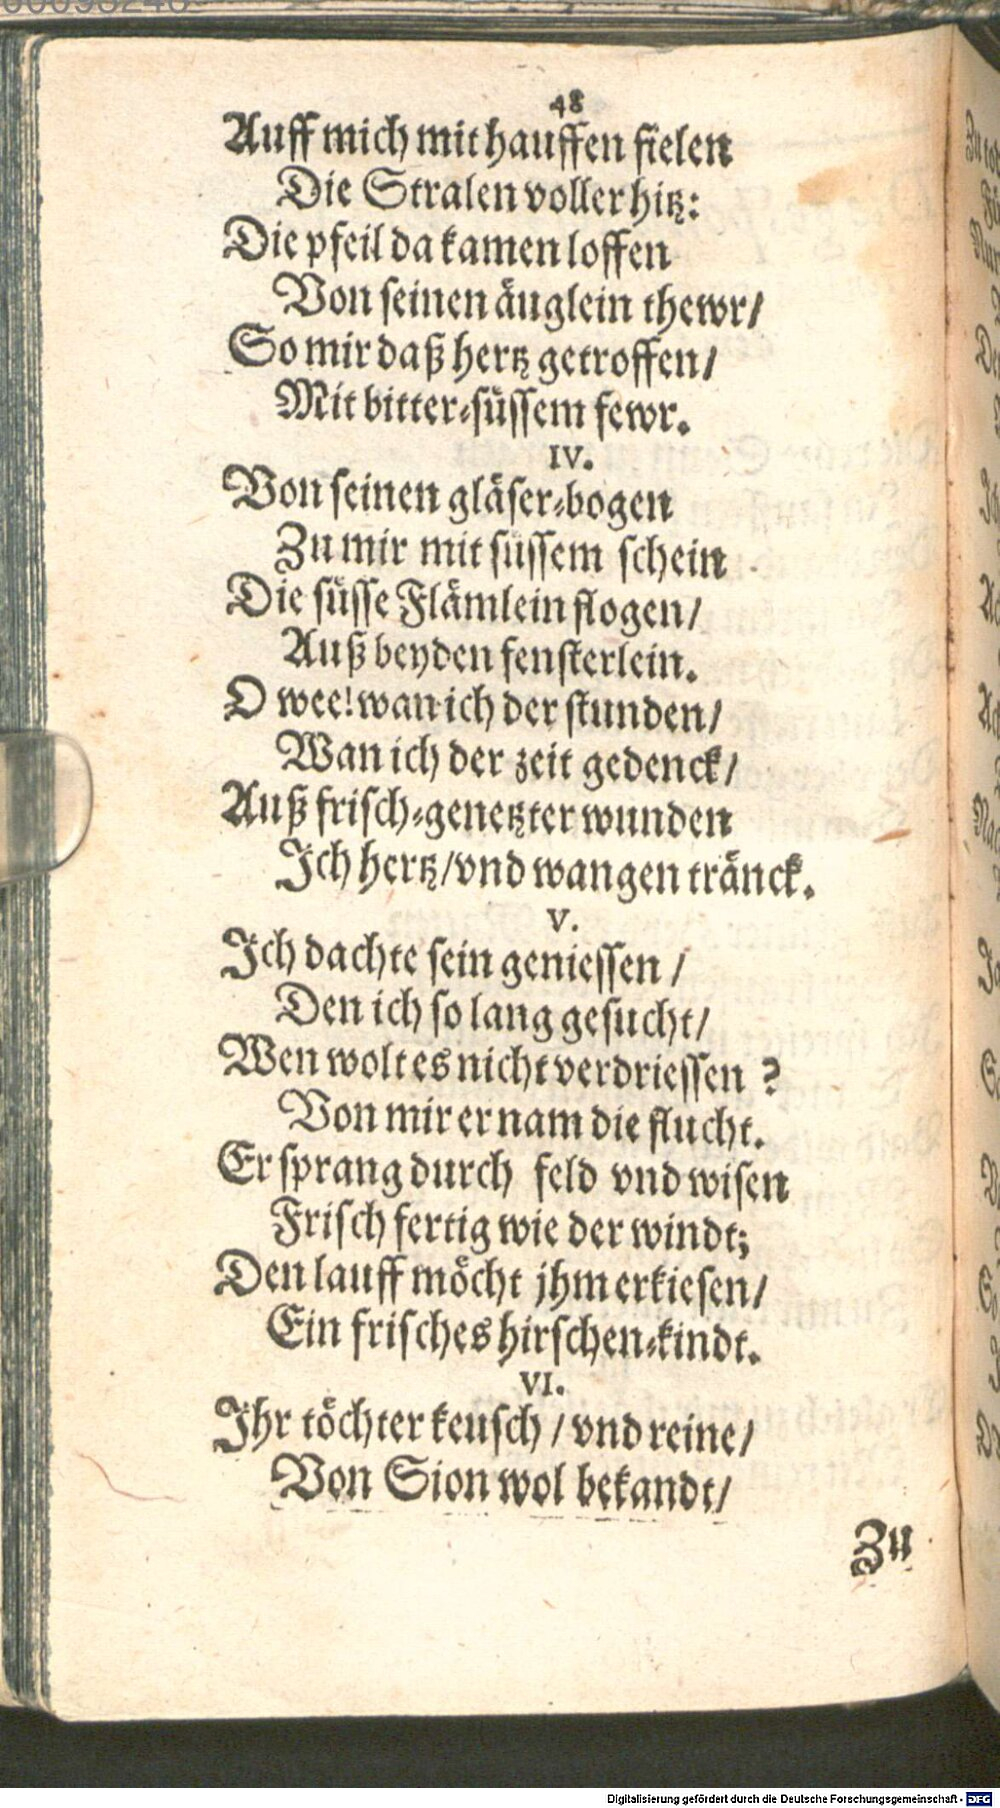 48
Auff mich mit hauffen fielen
Die Stralen voller hitz:
Die pfeil da kamen loffen
Von seinen äuglein thewr/
So mir daß hertz getroffen/
Mit bitter-süssem fewr.
IV.
Von seinen gläser-bogen
Zu mir mit süssem schein
Die süsse Flämlein flogen/
Auß beyden fensterlein.
O wee! wan ich der stunden/
Wan ich der zeit gedenck/
Auß frisch-genetzter wunden
Ich hertz/ vnd wangen tränck.
V.
Ich dachte sein geniessen/
Den ich so lang gesucht/
Wen wolt es nicht verdriessen?
Von mir er nam die flucht.
Er sprang durch feld vnd wisen
Frisch fertig wie der windt;
Den lauff möcht jhm erkiesen/
Ein frisches hirschen-kindt.
VI.
Ihr töchter keusch/ vnd reine/
Von Sion wol bekandt/
Zu
Digitalisierung gefördert durch die Deutsche Forschungsgemeinschaft - DFG